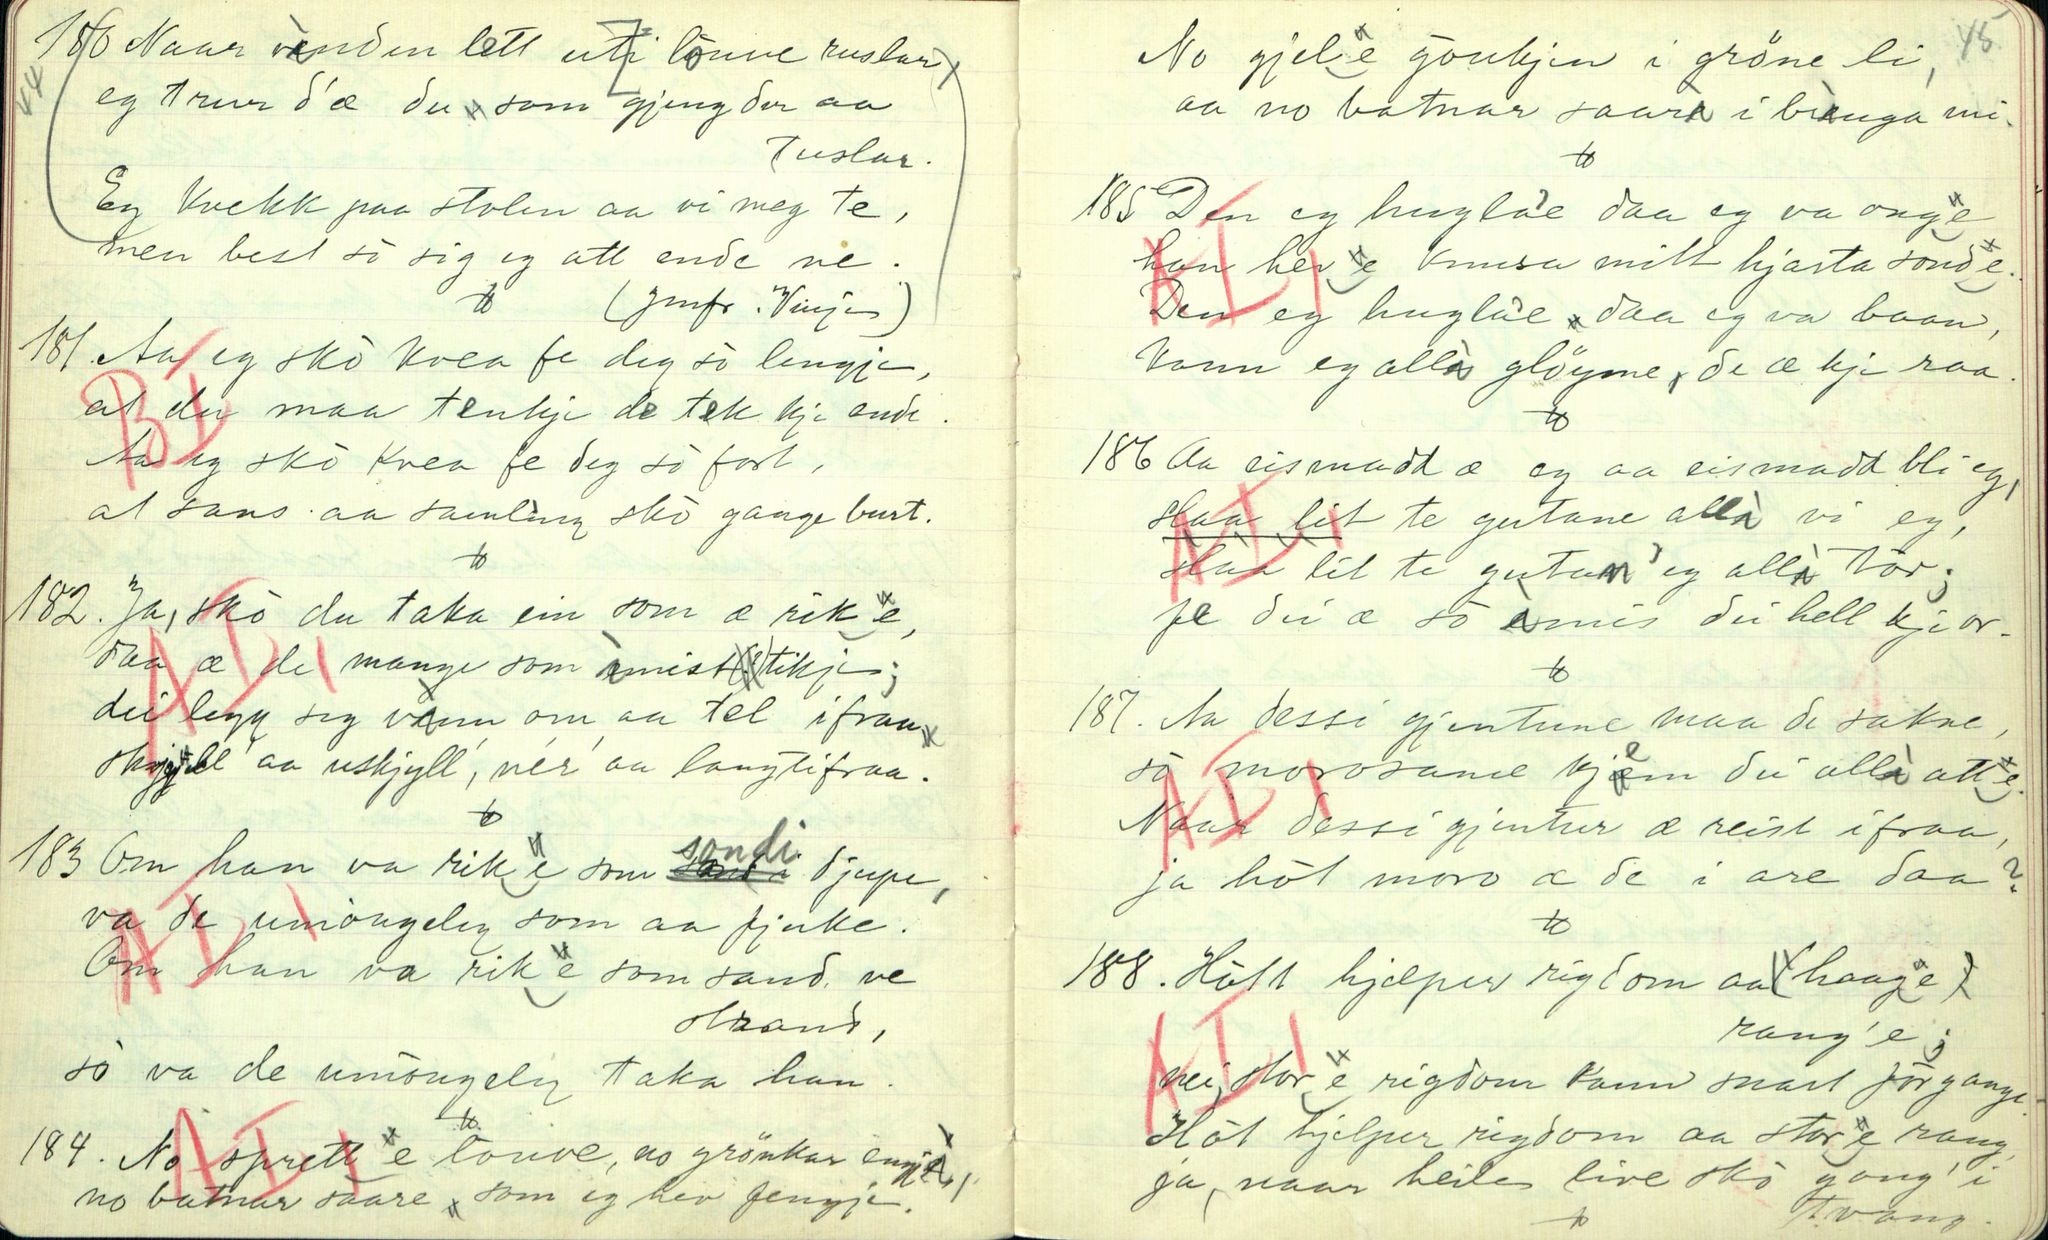 44
180 Naar vinden lett uti louve ruslar,
eg trur d'æ du som gjeng der aa
tuslar.
Eg kvekk paa stolen aa vi meg te,
men best sò sig eg att ende ne.
(Jmfr. Vinje)
181. Aa eg skò kvea fe deg sò lengje,
at du maa tenkje de tek kje ende.
Aa eg skò kvea fe deg sò fort,
at sans aa samling skò gange burt.
BI
182. Ja, skò du taka ein som æ rik e,
daa æ de mange som imist tikje;
dei legg seg vinn om aa tel ifraa
skjyll' aa uskjyll', nér' aa langtifraa.
AI,
183 Om han va rik e som sondi djupe,
va de umòngeleg som aa fjuke.
Om han va rik e som sand ve
strand,
sò va de umòngeleg taka han.
AI,
184. No sprett e louve, no grönkar engji,
no batnar saare, som eg hev fengje.
AI,
45
No gjel e goukjen i gröne li,
aa no batnar saari i bringa mi.
185 Den eg huglae daa eg va ong e
han hev e knusa mitt hjarta sònd e.
Den eg huglae, daa eg va baan,
kann eg alli glöyme, de æ kje raa.
AI,
186 Aa eismadd æ eg aa eismadd bli eg,
slaa lit te gutane alli vi eg,
slaa lit te gutan' eg alli tòr;
fe dei æ sò imis dei hell kje or.
AI,
187. Aa dessi gjentune maa de sakne,
sò morosame kjem dei alli att e.
Naar dessi gjentur æ reist ifraa,
ja hòt moro æ de i are daa?
AI,
188. Hòtt hjelper rigdom aa (haag e)
rang'e;
nei, stor e rigdom kann snart förgange.
Hòt hjelper rigdom aa stor e rang,
ja, naar heile live skò gang' i
tvang.
AI,